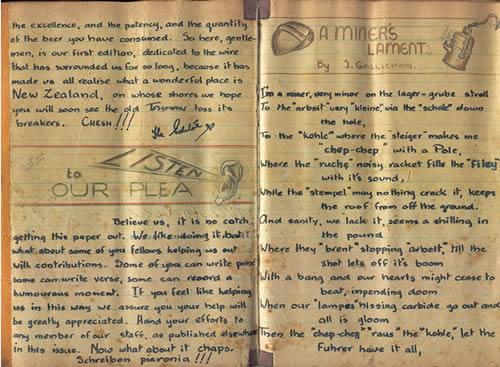 the excellence, and the potency, and the quantity
of the beer you have consumed. So here, gentle-
men, is our first edition, dedicated to the wire
that has surrounded us for so long, because it has
made us all realise what a wonderful place is
New Zealand, on whose shores we hope
you will soon see the old Tasman toss its
breakers. CHESH!!!
The
LISTEN
to
OUR PLEA
Believe us, it is no catch
getting this paper out. We like doing it, but
what about some of you fellows helping us out
with contributions. Some of you can write prose
some can write verse, some can record a
humourous moment. If you feel like helping
us in this way we assure you your help will
be greatly appreciated. Hand your efforts to
any member of our staff, as published elsewhere
in this issue. Now what about it chaps.
Schreiben pieronia!!!
A MINER'S
LAMENT.
By J. GALLICHAN.
I'm a miner, very minor on the lager-grube stroll
To the "arbeit" very "kleine," via the "schole" down
the hole,
To the "kohle" where the "steiger" makes me
"chep-chep" with a Pole,
Where the "ruche" noisy racket fills the "filey"
with it's sound,
While the "stempel" may nothing crack it, keeps
the roof from off the ground.
And sanity, we lack it, seems a shilling in
the pound
Where they "brent" stopping "arbeit," till the
shot lets off it's boom
With a bang and our hearts might cease to
beat, impending doom
When our "lampes" hissing carbide go out and
all is gloom
Then the "chep-chep" "raus" the "kohle," let the
Fuhrer have it all,